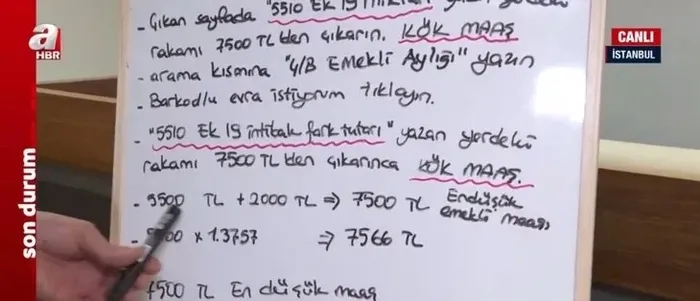 a
HBR
CANLI
İSTANBUL
son durum
- Çıkan sayfada "5510 Ek 19 intibak
rakamı 7500 TL'den çıkarın. KÖK MAAŞ
- arama kısmına "4/B Emekli Aylığı" yazın
- Barkodlu evra istiyorum tıklayın.
- "5510 Ek 19 intibak fark tutarı" yazan yerdeki
rakamı 7500 TL'den çıkarınca KÖK MAAŞ.
- 5500 TL + 2000 TL ⇒ 7500 TL Endüşük
emekli maaşı
- 5500 x 1.3757 ⇒ 7566 TL
7500 TL En düşük maaş